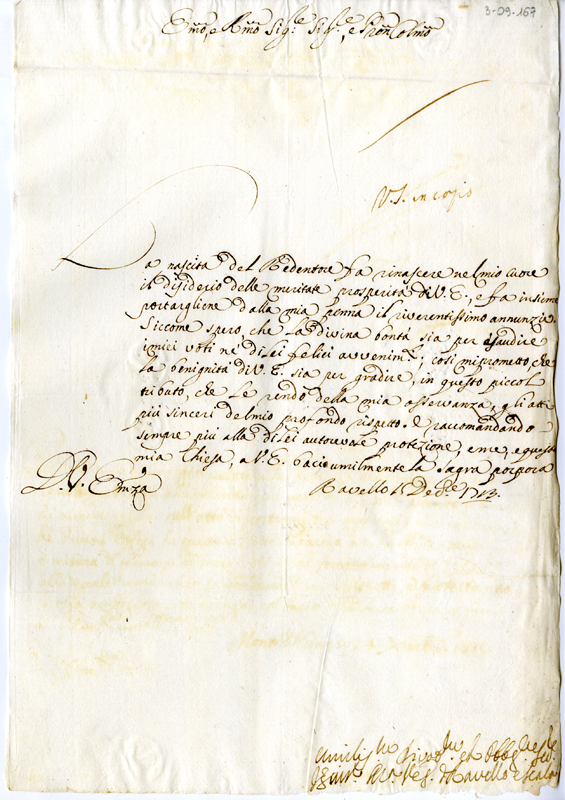 3-29-167
Emo, e Rmo Sig.re Sig.re, e Pron Colmo
V.S. in cogio
La nascita del Redentore fa rinascere nel mio cuore
il desiderio delle meritate prosperità di V.E., e fa insieme
portargliene dalla mia penna il riverentissimo annunzio.
Siccome spero, che la divina bontà sia per esaudire
i miei voti ne' di lei felici avvenimti; così mi prometto, che
la benignità di V.E. sia per gradire, in questo piccol
tributo, che le rendo della mia osservanza, gli atti
più sinceri del mio profondo rispetto. E raccomandando
sempre più alla di lei autorevole protezione, e me, e questa
mia Chiesa, a V.E. bacio umilmente la sagra porpora
D. V. Emza
Ravello 15 Dec.e 1713.
Umilis.mo Divot.mo et Obblig.mo
Ves.o di Ravello e Scala